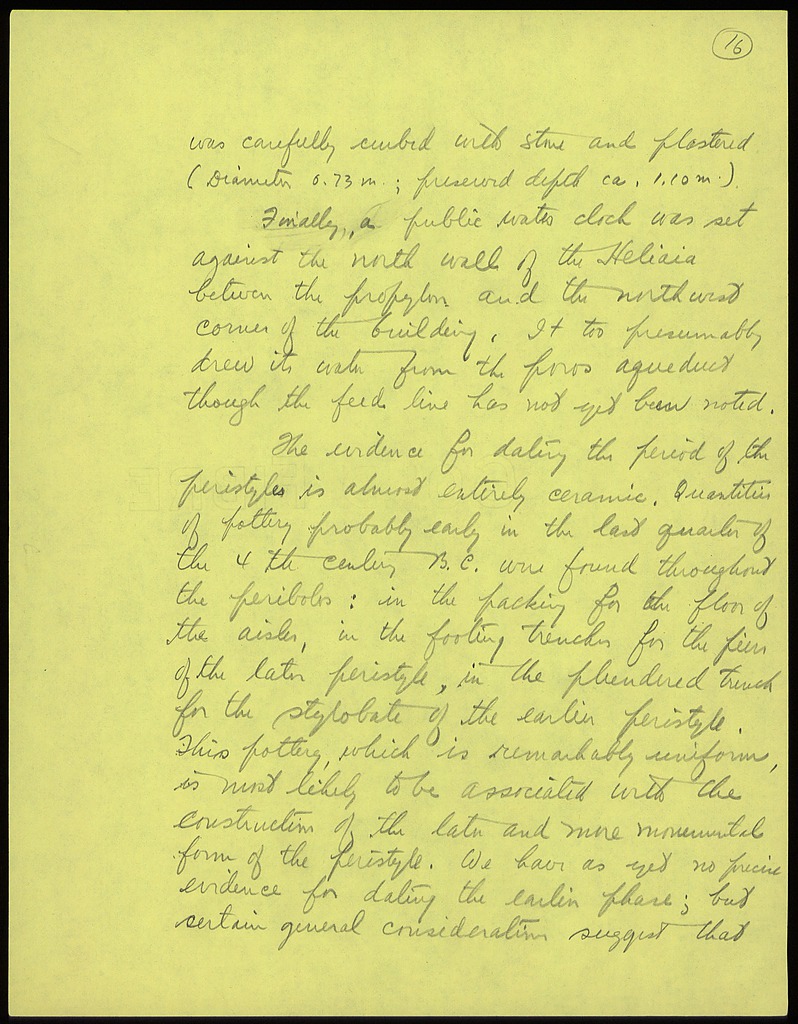 16
was carefully curbed with stone and plastered
(Diameter 0.73 m.; preserved depth ca. 1.10 m.).
Finally, a public water clock was set
against the north wall of the Heliaia
between the propylon and the northwest
corner of the building. It too presumably
drew its water from the poros aqueduct
though the feed line has not yet been noted.
The evidence for dating the period of the
peristyles is almost entirely ceramic. Quantities
of pottery probably early in the last quarter of
the 4th century B.C. were found throughout
the peribolos: in the packing for the floor of
the aisles, in the footing trenches for the piers
of the later peristyle, in the plundered trench
for the stylobate of the earlier peristyle.
This pottery, which is remarkably uniform,
is most likely to be associated with the
construction of the later and more monumental
form of the peristyle. We have as yet no precise
evidence for dating the earlier phase; but
certain general considerations suggest that